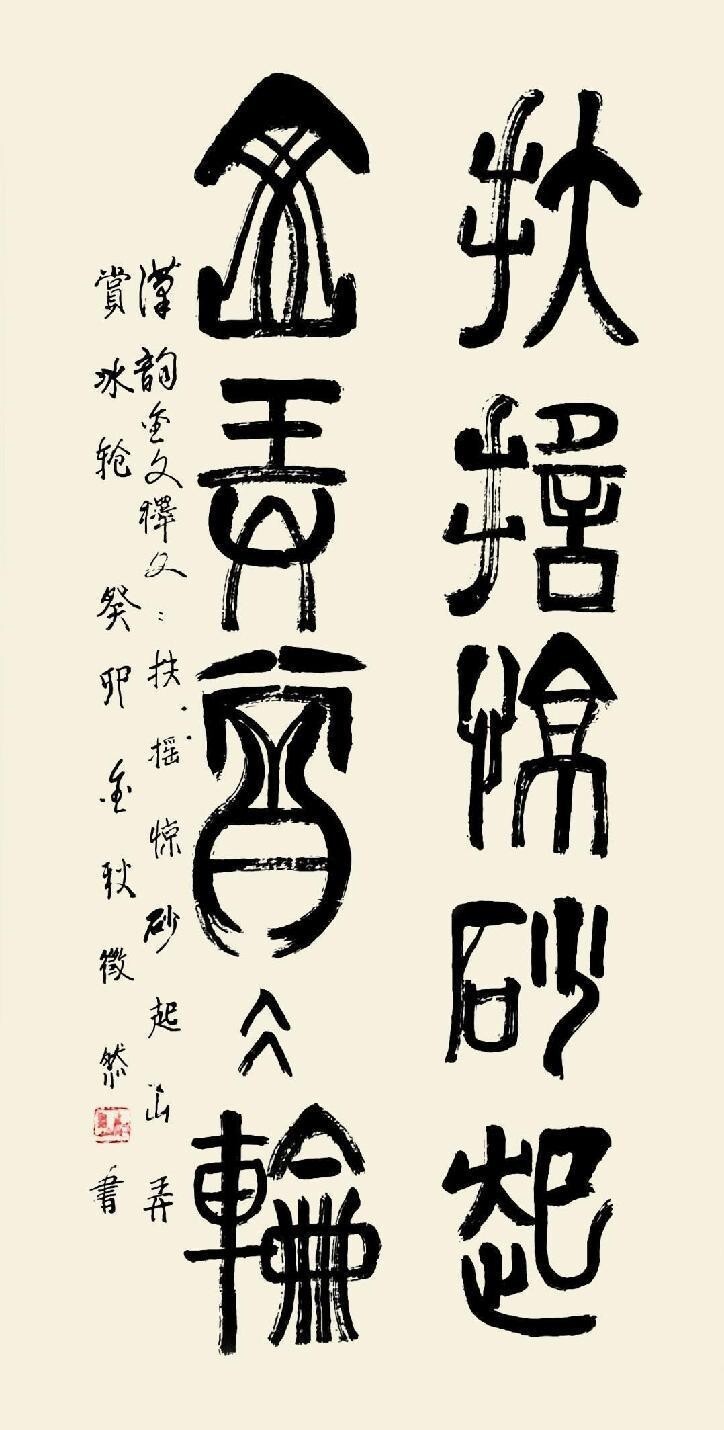 扶摇惊砂起
出弄賞冰輪
漢韵金文釋文：扶摇惊砂起出弄
賞冰轮 癸卯金秋徵然書